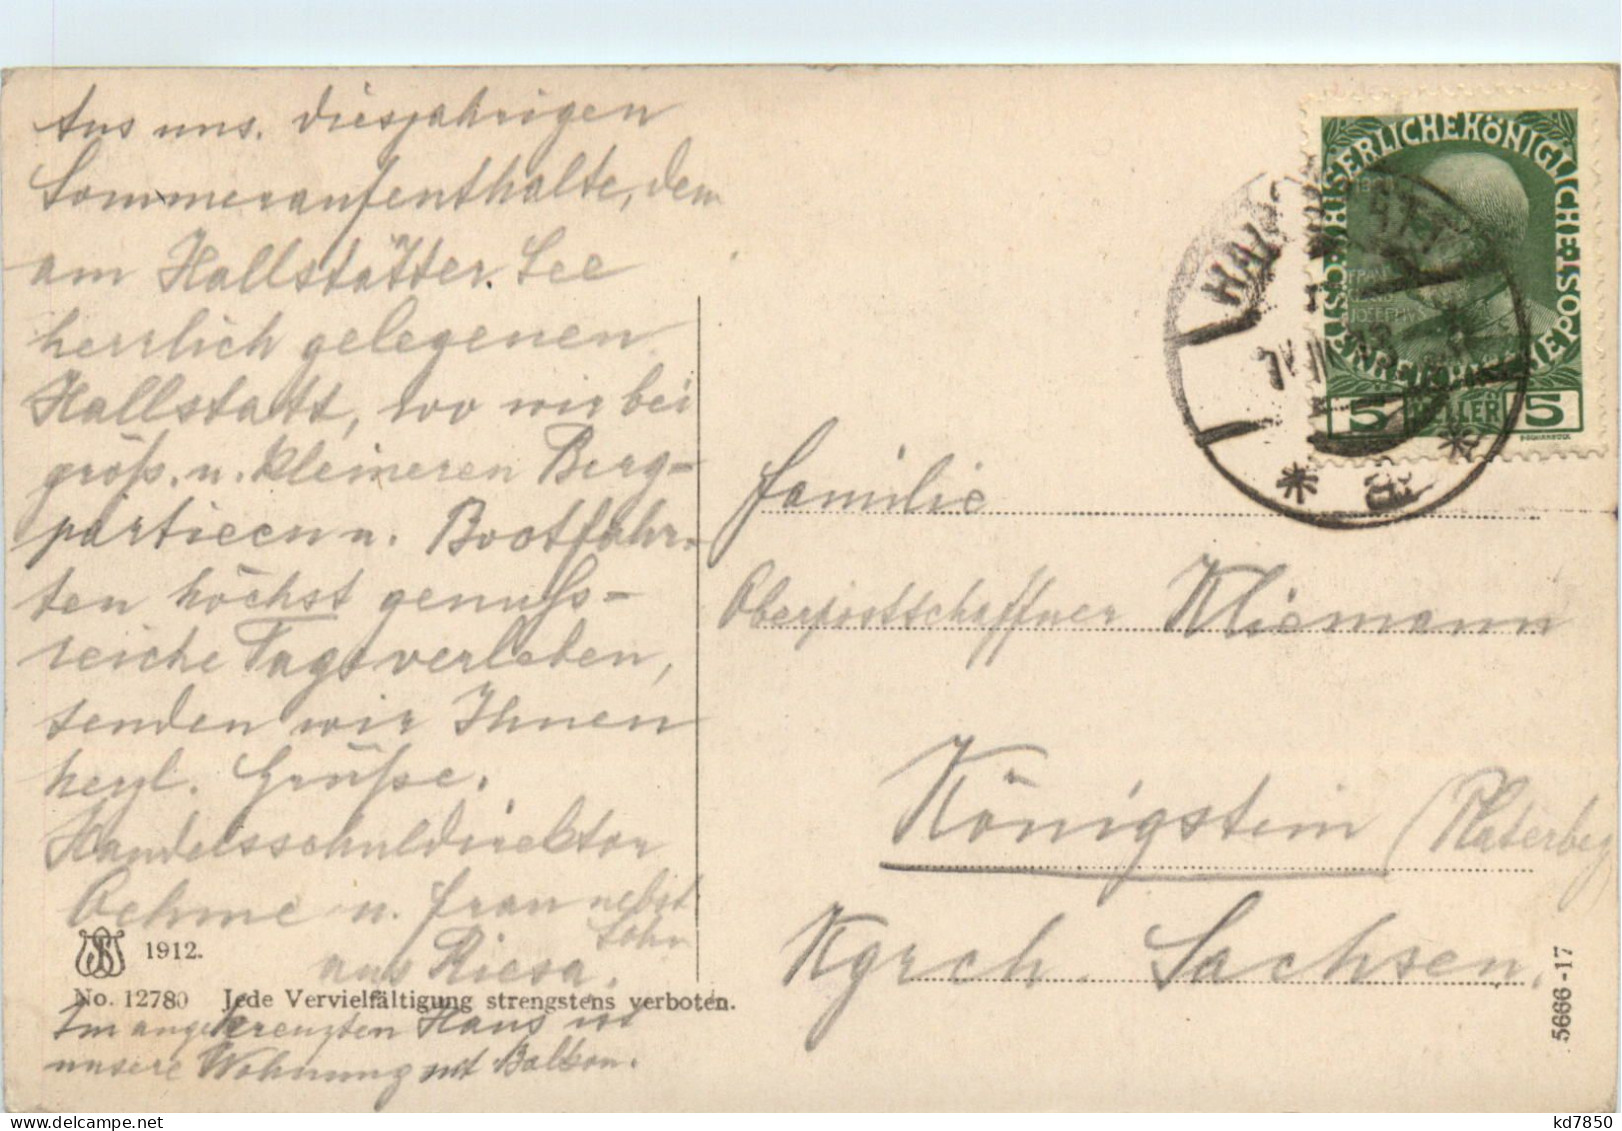 Aus uns. diesjährigen
Sommeraufenthalte, dem
am Hallstätter See
herrlich gelegenen
Hallstatt, wo wir bei
größ. u. kleineren Berg-
partieen u. Bootfahr-
ten höchst genuß-
reiche Tage verleben,
senden wir Ihnen
herzl. Grüße.
Handelsschuldirektor
Oehme u. Frau nebst
Sohn
aus Riesa.
1912.
No. 12780 Jede Vervielfältigung strengstens verboten.
Im angekreuzten Haus ist
unsere Wohnung mit Balkon.
KAISERLICHE KÖNIGLICHE
ÖSTERREICHISCHE POST
FRANZ
JOSEPH
5 HELLER 5
HALLSTATT
Familie
Oberpostschaffner Kliemann
Königstein
Kgrch. Sachsen.
5666-17
kd7850